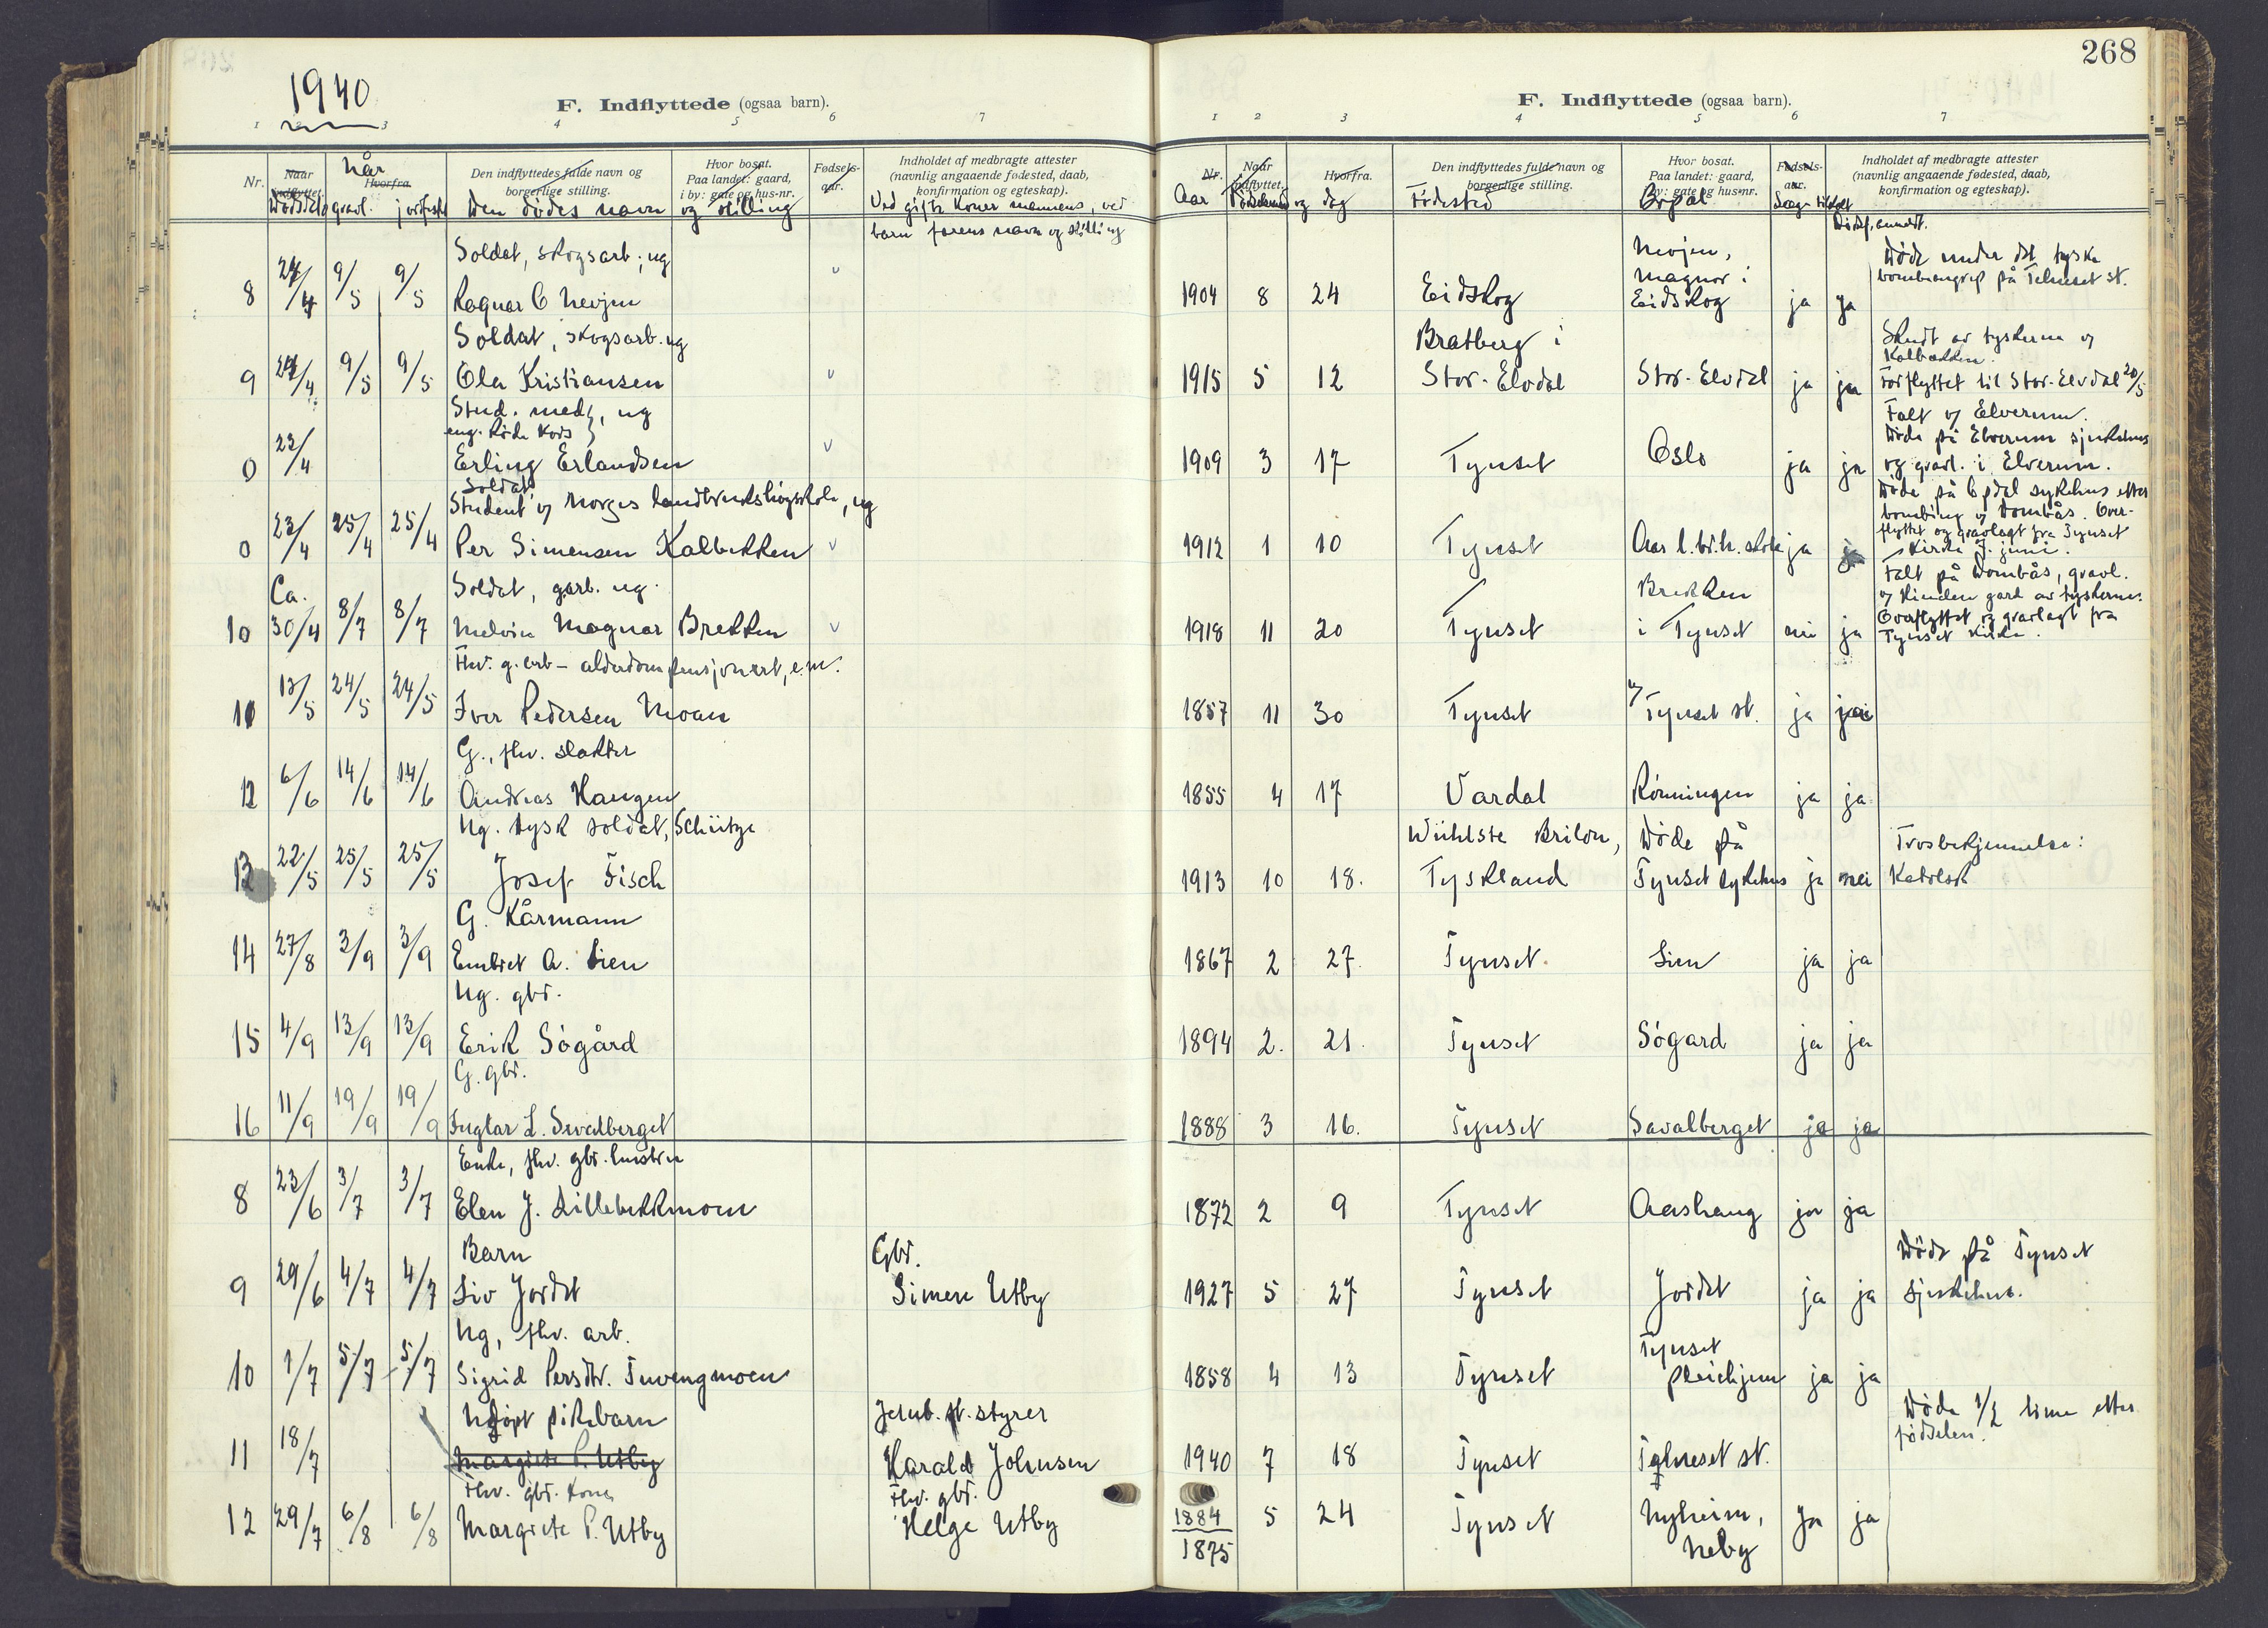 1940
F. Indflyttede (ogsaa barn).
1 2 3 4 5 6 7
Nr. Naar indflyttet. når Hvorfra. Den indflyttedes fulde navn og borgerlige stilling. Hvor bosat. Paa landet: gaard, i by: gate og hus-nr. Fødsels-aar. Indholdet af medbragte attester (navnlig angaaende fødested, daab, konfirmation og egteskap).
gravl. jordfestet Den dödes navn og stilling Ved gifte koner mannens, ved
barn farens navn og stilling
Soldat, skogsarb., ug
8 24/4 9/5 9/5 Ragnar O Nevjen
Soldat, skogsarb. ug
9 24/4 9/5 9/5 Ola Kristiansen
Stud. med, ug
eng. Röde Kors
0 23/4 Erling Erlandsen
Soldat
Student v/ Norges landbrukshögskole, ug
0 23/4 25/4 25/4 Per Simensen Kolbekken
Ca. Soldat, garb. ug.
10 30/4 8/7 8/7 Melvin Magnar Brekken
Fhv. g.arb - alderdomspensjonert, e.m.
11 13/5 24/5 24/5 Iver Pedersen Moan
G., fhv. slakter
12 6/6 14/6 14/6 Andreas Haugen
Ug. tysk soldat, Schütze
13 22/5 25/5 25/5 Josef Fisch
G. Kårmann
14 27/8 3/9 3/9 Embret A. Lien
Ug. gbr.
15 4/9 13/9 13/9 Erik Sögård
G. gbr.
16 11/9 19/9 19/9 Inglar L. Savalberget
Enke, fhv. gbr. hustru
8 23/6 3/7 3/7 Elen J. Lillebekkmoen
Barn Gbr.
9 29/6 4/7 4/7 Liv Jordet Simen Utby
Ug, fhv. arb.
10 1/7 5/7 5/7 Sigrid Persdtr. Tuvengmoen
Udöpt pikebarn Jernb. st. styrer
11 18/7 Margrete P. Utby Harald Johnsen
Fhv. gbr. kone Fhv. gbr.
12 29/7 6/8 6/8 Margrete P. Utby Helge Utby
268
F. Indflyttede (ogsaa barn).
1 2 3 4 5 6 7
Nr. Naar indflyttet. Hvorfra. Den indflyttedes fulde navn og borgerlige stilling. Hvor bosat. Paa landet: gaard, i by: gate og husnr. Fødsels-aar. Indholdet af medbragte attester (navnlig angaaende fødested, daab, konfirmation og egteskap).
Aar og dag Födested Bopæl
Nevjen, Döde under det tyske
Magnor i bombeangrep på Telneset st.
1904 8 24 Eidskog Eidskog ja ja
Bratberg i Skudt av tyskerne v/
Kolbækken.
1915 5 12 Stor-Elvdal Stor-Elvdal ja ja Forflyttet til Stor-Elvdal 20/5
Falt v/ Elverum.
Döde på Elverum sjukehus
1909 3 17 Tynset Oslo ja ja og gravl. i Elverum.
Döde på Opdal sykehus etter
bombing v/ Dombås. Over-
flyttet og gravlagt fra Tynset
1912 1 10 Tynset Aas l.br.h. skole ja ja Kirke 7. juni.
Falt på Dombås, gravl.
Brekken v/ Kinden gard av tyskerne.
Overflyttet og gravlagt fra
1918 11 20 Tynset i Tynset nei ja Tynset kirke.
1857 11 30 Tynset v/ Tynset st. ja
1855 4 17 Vardal Rönningen ja ja
Wühlste Brilon, Döde på Trosbekjennelse:
1913 10 18. Tyskland Tynset sykehus ja nei Katolsk
1867 2 27. Tynset. Lien ja ja
1894 2. 21. Tynset Sögard ja ja
1888 3 16. Tynset Savalberget ja ja
1872 2 9 Tynset Aashaug ja ja
Döde på Tynset
1927 5 27 Tynset Jordet ja ja sjukehus.
Tynset
1858 4 13 Tynset pleiehjem ja ja
Döde 1/2 time etter
födselen.
1940 7 18 Tynset Telneset st.
1884 5 24 Tynset Nyheim, ja ja
1875 Neby